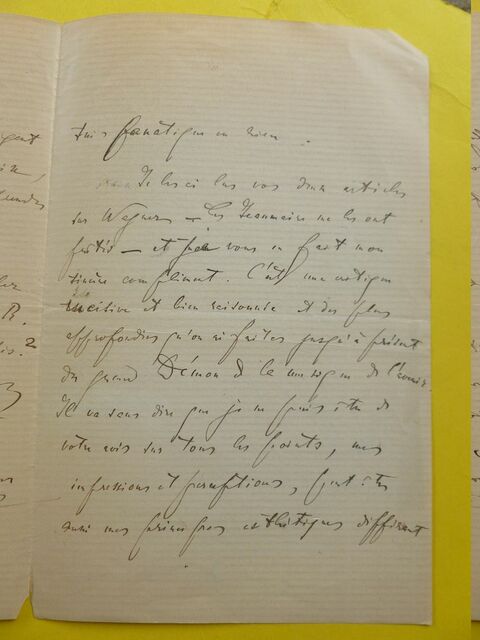 suis fanatique en rien.
Je les ai lus vos deux articles
sur Wagner – les Jeanmaire me les ont
– et vous en fait mon
sincère compliment. C'est une critique
incisive et bien raisonnée et des plus
approfondies qu'on ait faites jusqu'à présent
du grand Démon de la musique de l'avenir.
Il va sans dire que je ne puis être de
votre avis sur tous les points, mes
impressions et perceptions, peut-être
aussi mes principes esthétiques diffèrent
gent
R.
2